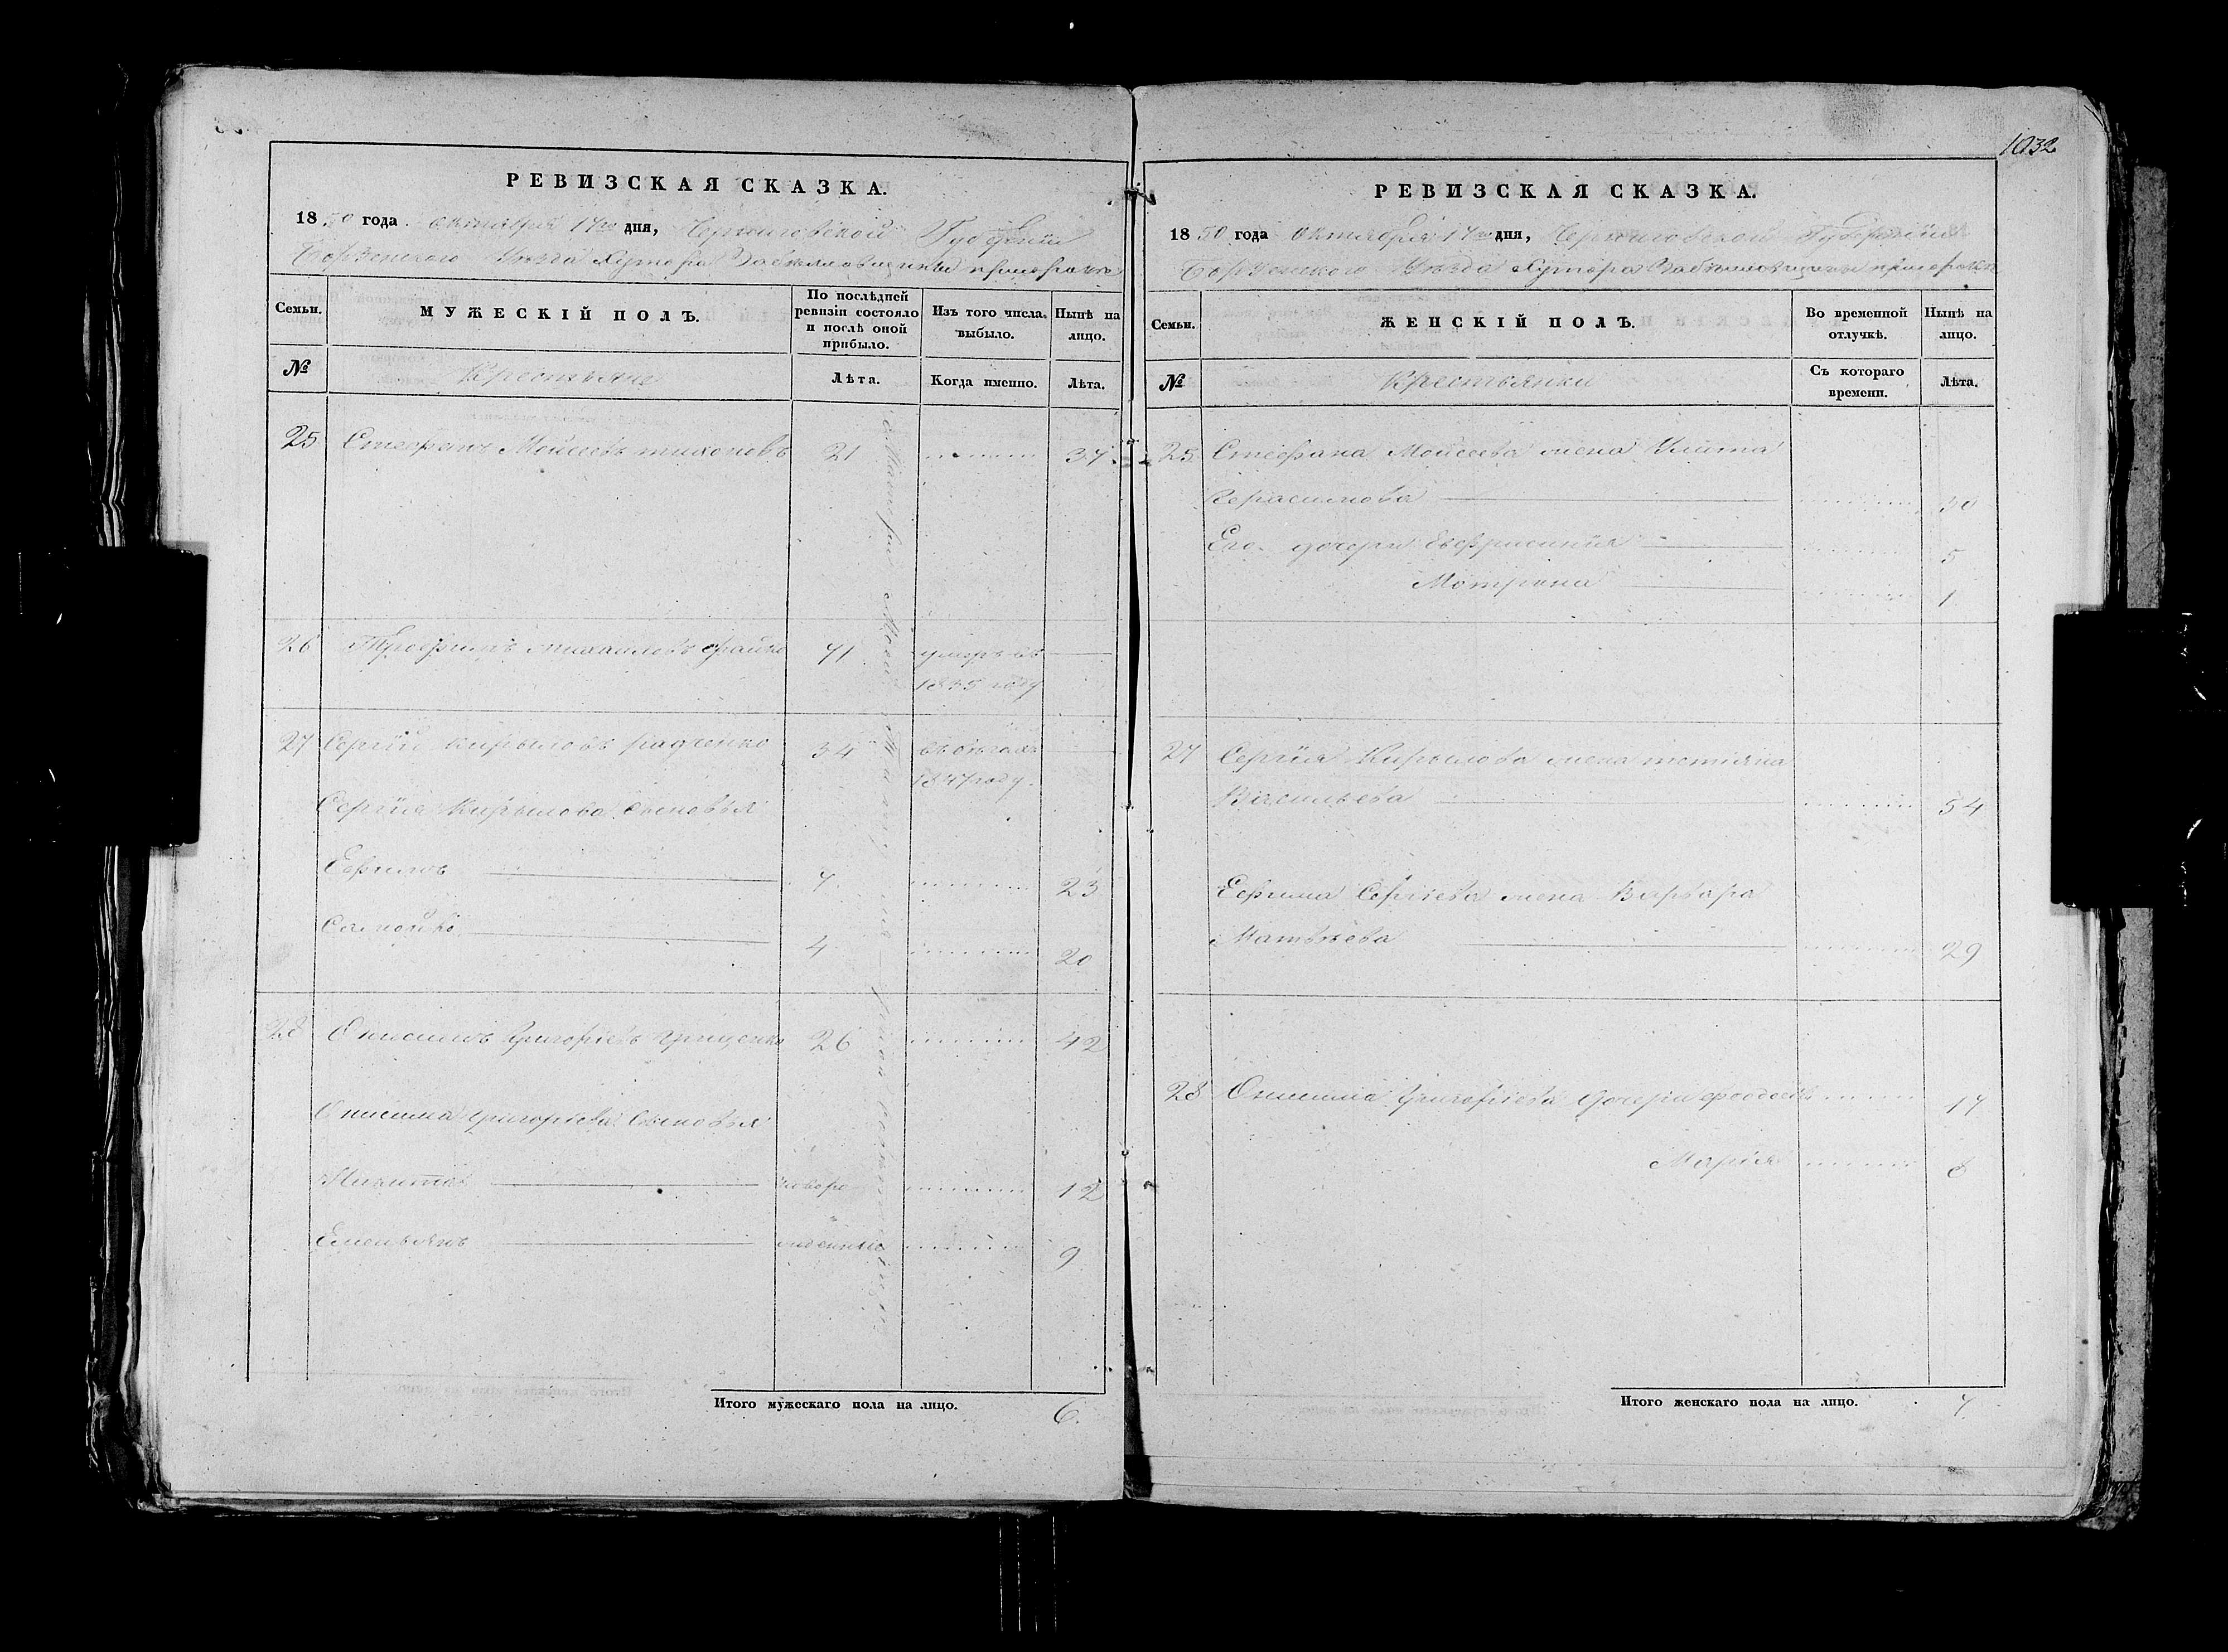 1032
РЕВИЗСКАЯ СКАЗКА.
1850 года октября 17го дня, Черниговской Губерніи
Борзенскаго Уѣзда Хутора
Семьи.
МУЖЕСКІЙ ПОЛЪ.
По послѣдней ревизіи состояло и послѣ оной прибыло.
Изъ того числа выбыло.
Нынѣ на лицо.
№
Крестьяне
Лѣта.
Когда именно.
Лѣта.
25 Стефанъ Моисеевъ тихоновъ 21 37
26 Трофимъ михайловъ 71 умеръ въ
1845 году
27 Сергій Кирыловъ радченко 54
1847 году.
Сергія Кирылова Сыновья
Ефимъ 7 23
Самойло 4 20
28 Онисимъ Григорьевъ Грищенко 26 42
Онисима Григорьева Сыновья
Никита новоро 12
Емельянъ жденные 9
Итого мужескаго пола на лицо. 6.
РЕВИЗСКАЯ СКАЗКА.
1850 года Октября 17го дня, Черниговской Губерніи
Борзенскаго Уѣзда Хутора
Семьи.
ЖЕНСКІЙ ПОЛЪ.
Во временной отлучкѣ.
Нынѣ на лицо.
№
Крестьянки
Съ котораго времени.
Лѣта.
25 Стефана Моисеева жена Улита
Герасимова 30
Его дочери Евфросинія 5
Мотрона 1
27 Сергія Кирылова жена татіяна
Васильева 54
Ефима Сергіева жена Варвара
Матвѣева 29
28 Онисима Григоріева дочери 17
Марія 8
Итого женскаго пола на лицо. 7